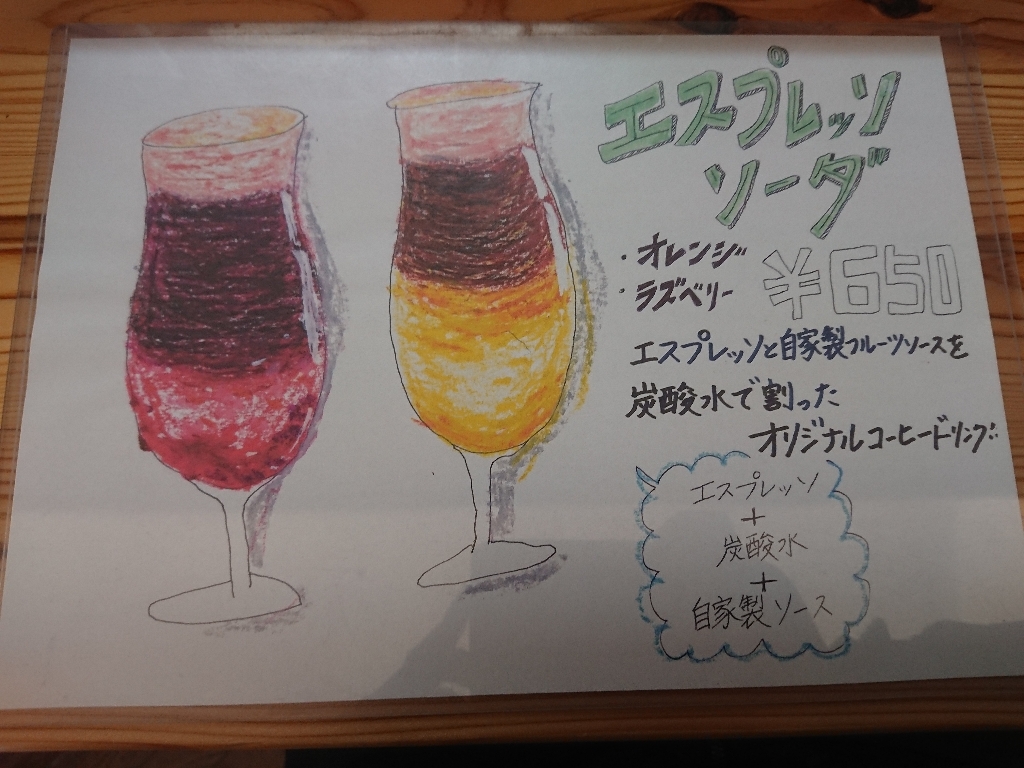 エスプレッソ
ソーダ
・オレンジ
・ラズベリー
¥650
エスプレッソと自家製フルーツソースを
炭酸水で割った
オリジナルコーヒードリンク
エスプレッソ
+
炭酸水
+
自家製ソース